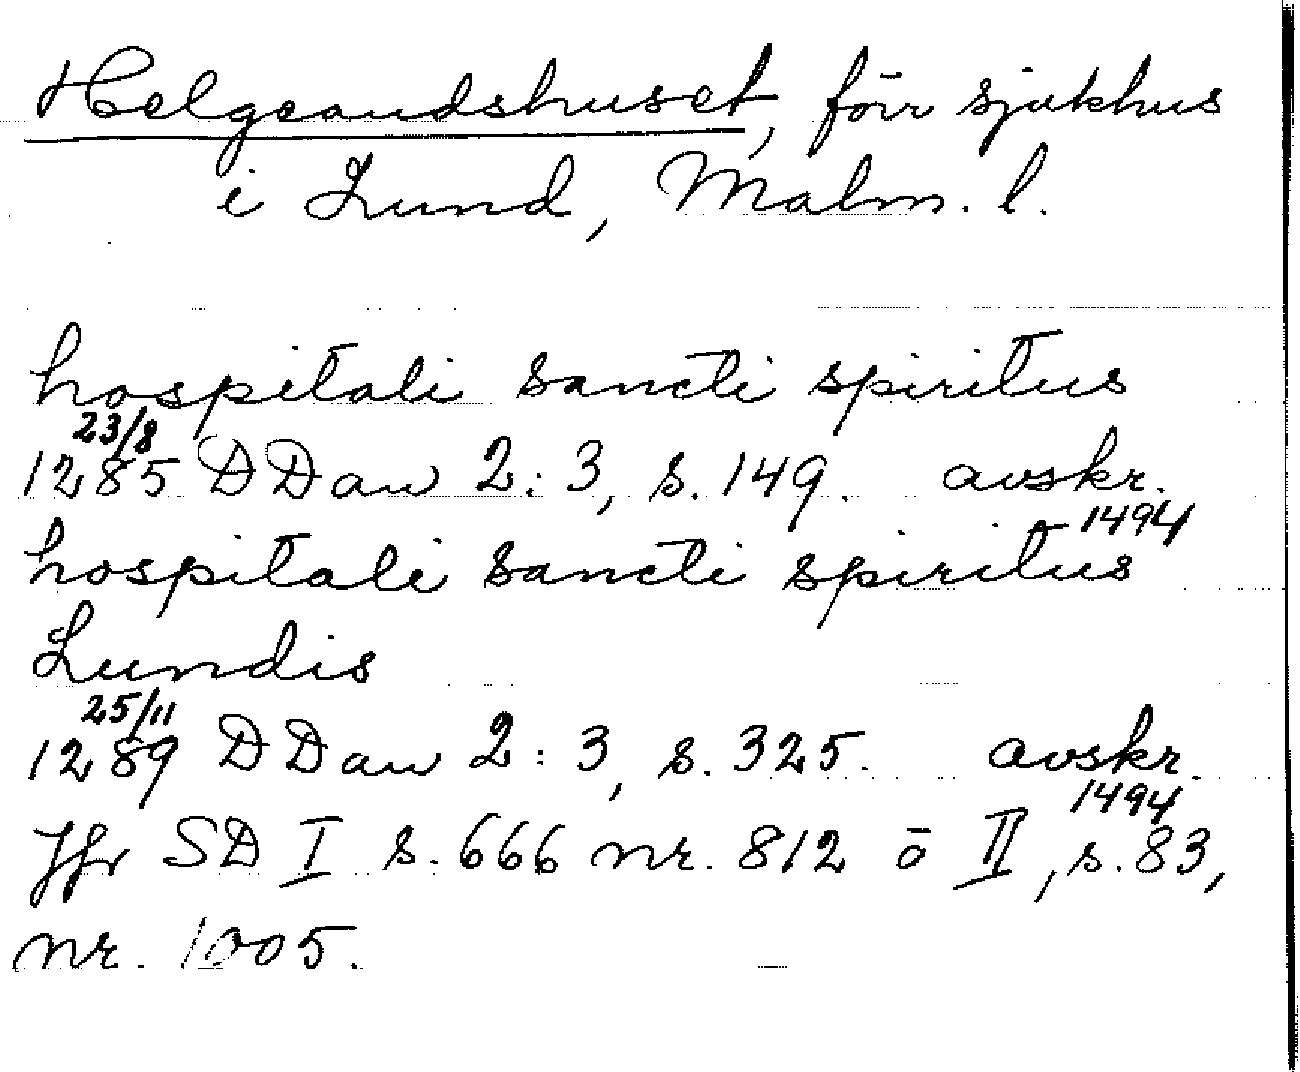 Helgeandshuset, förr sjukhus
i Lund, Malm. l.
hospitali sancti spiritus
23/8
1285 DDan 2:3, s. 149. avskr.
1494
hospitali sancti spiritus
Lundis
25/11
1289 DDan 2:3, s. 325. avskr.
1494
Jfr SD I s. 666 nr. 812 o II, s. 83,
nr. 1005.